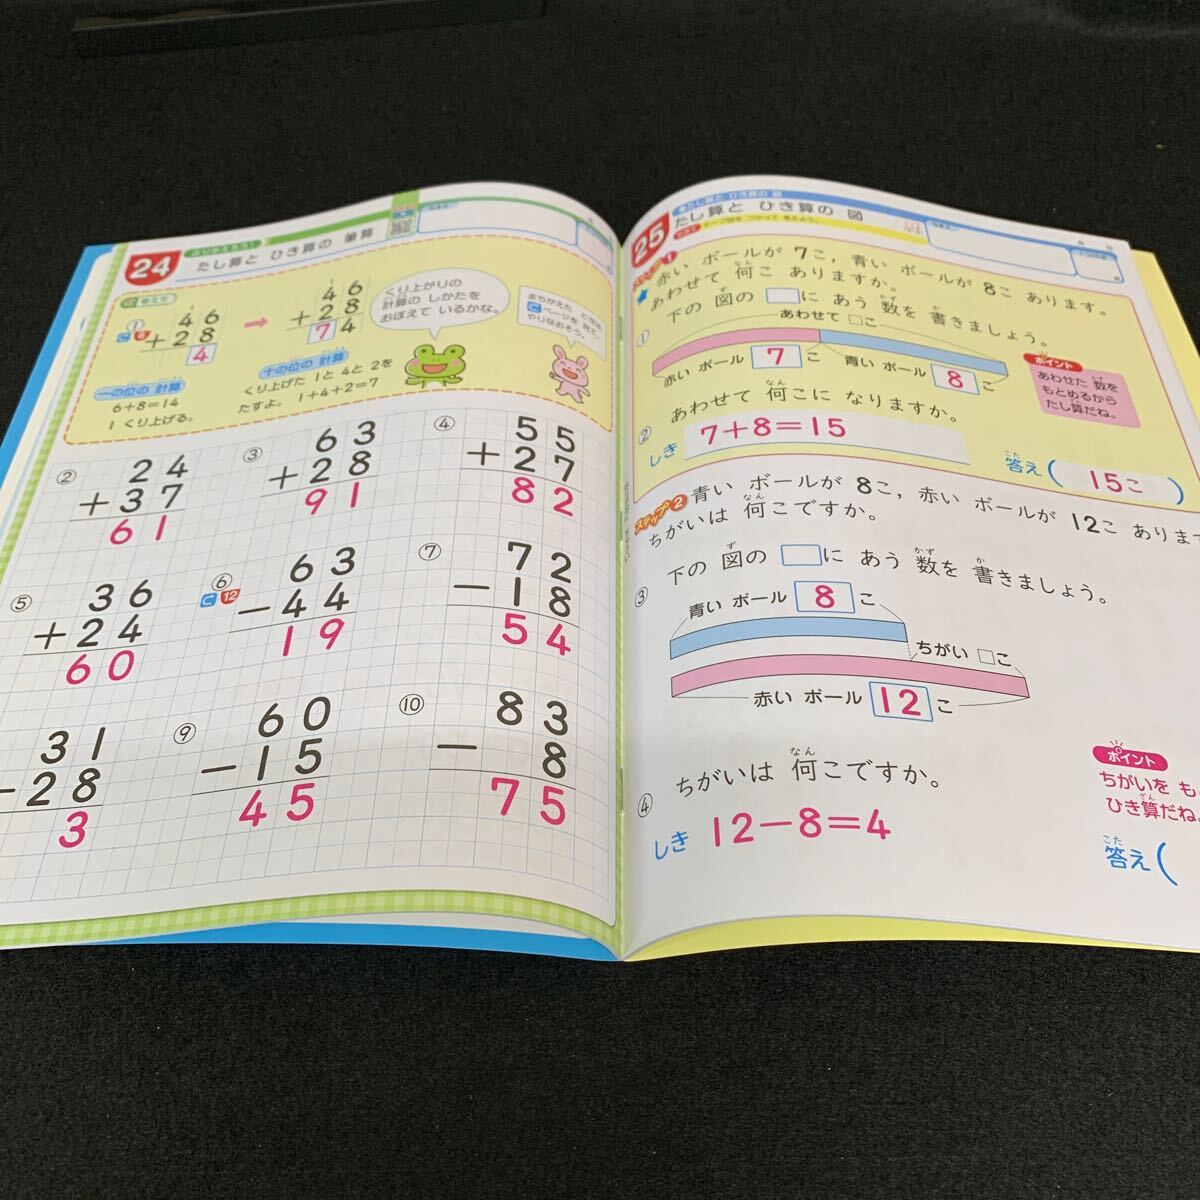 24
ふりかえろう!
たし算と ひき算の 筆算
考え方
①
1
46
+28
4
→
1
46
+28
74
くり上がりの
計算の しかたを
おぼえて いるかな。
まちがえた ときは,
Cページを 見て,
やりなおそう。
一の位の 計算
6+8=14
1 くり上げる。
十の位の 計算
くり上げた 1と 4と 2を
たすよ。 1+4+2=7
②
24
+37
61
③
63
+28
91
④
55
+27
82
⑤
36
+24
60
⑥
C 12
63
-44
19
⑦
72
-18
54
31
-28
3
⑨
60
-15
45
⑩
83
- 8
75
25
たし算と ひき算の 図
たし算と ひき算の 図
テープ図を つかって 考えよう。
ステップ1
赤い ボールが 7こ, 青い ボールが 8こ あります。
あわせて 何こ ありますか。
① 下の 図の □に あう 数を 書きましょう。
あわせて □こ
赤い ボール 7 こ
青い ボール 8 こ
ポイント
あわせた 数を
もとめるから
たし算だね。
② あわせて 何こに なりますか。
しき 7+8=15
答え( 15こ )
ステップ2
青い ボールが 8こ, 赤い ボールが 12こ あります
ちがいは 何こですか。
③ 下の 図の □に あう 数を 書きましょう。
青い ボール 8 こ
ちがい □こ
赤い ボール 12 こ
④ ちがいは 何こですか。
しき 12-8=4
ポイント
ちがいを も
ひき算だね。
答え(